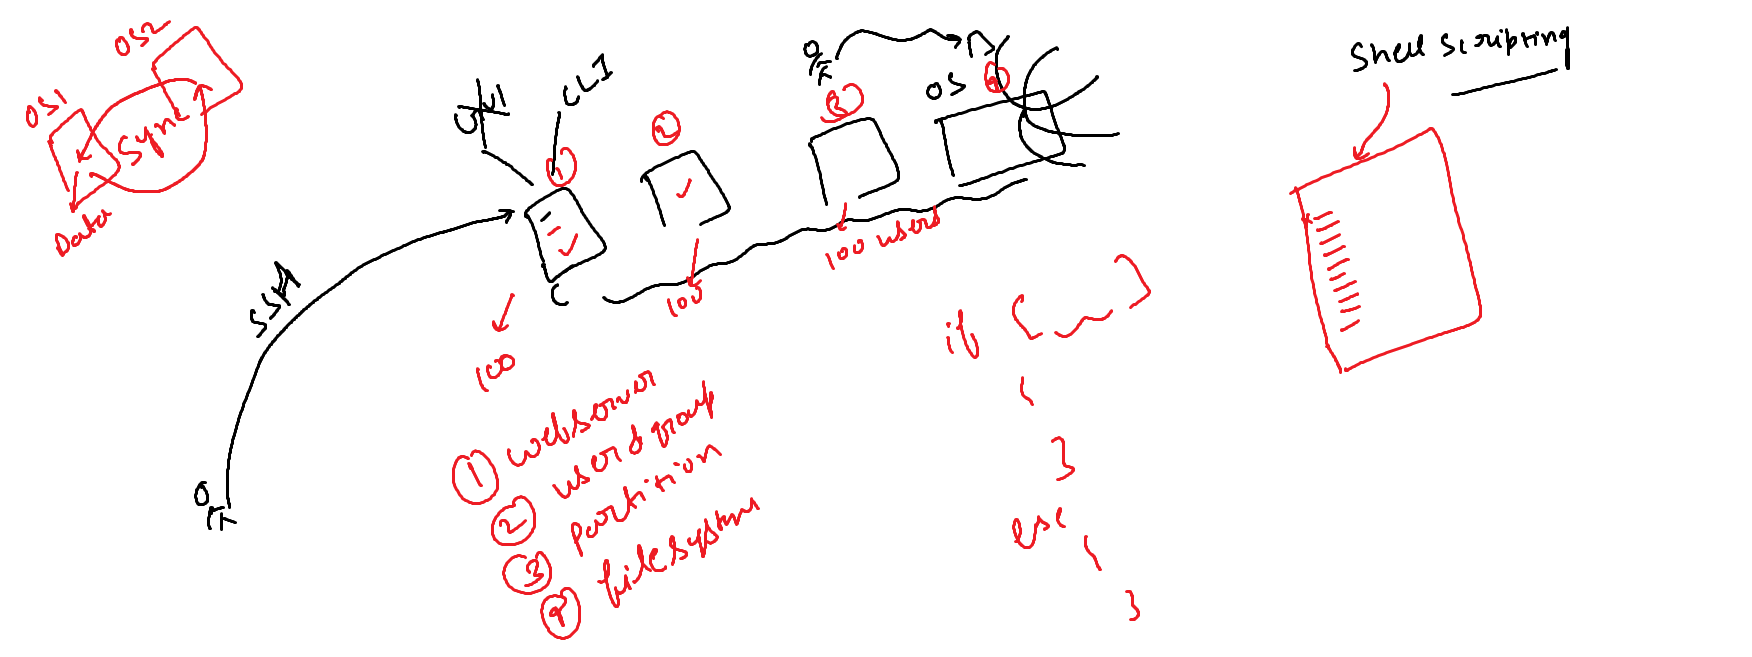 OS2
OS1
Sync
Data
GUI
CLI
1
2
3
4
OS
C
SSH
100
105
100 users
1 webserver
2 user & group
3 partition
4 filesystem
if { }
{
}
else
{
}
Shell Scripting